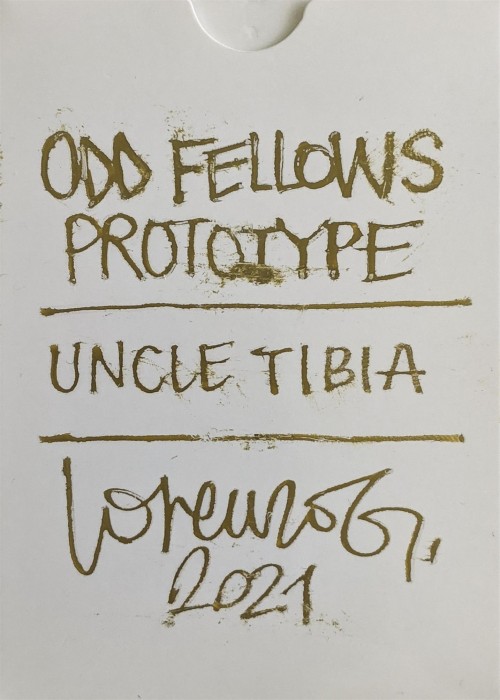 ODD FELLOWS
PROTOTYPE
UNCLE TIBIA
Lorenzo G.
2021